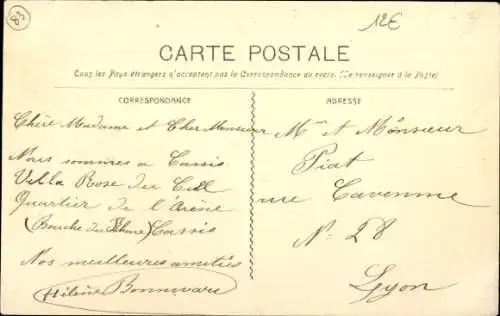 83
12€
CARTE POSTALE
Tous les Pays étrangers n'acceptent pas la Correspondance au recto. (Se renseigner à la Poste)
CORRESPONDANCE
Chère Madame et Cher Monsieur
Nous sommes a Cassis
Villa Rose du Ciel
Quartier de l'Arène
(Bouche du Rhône) Cassis
Nos meilleures amitiés
Hélène
ADRESSE
Mme et Monsieur
Piat
rue Cavenne
No 28
Lyon